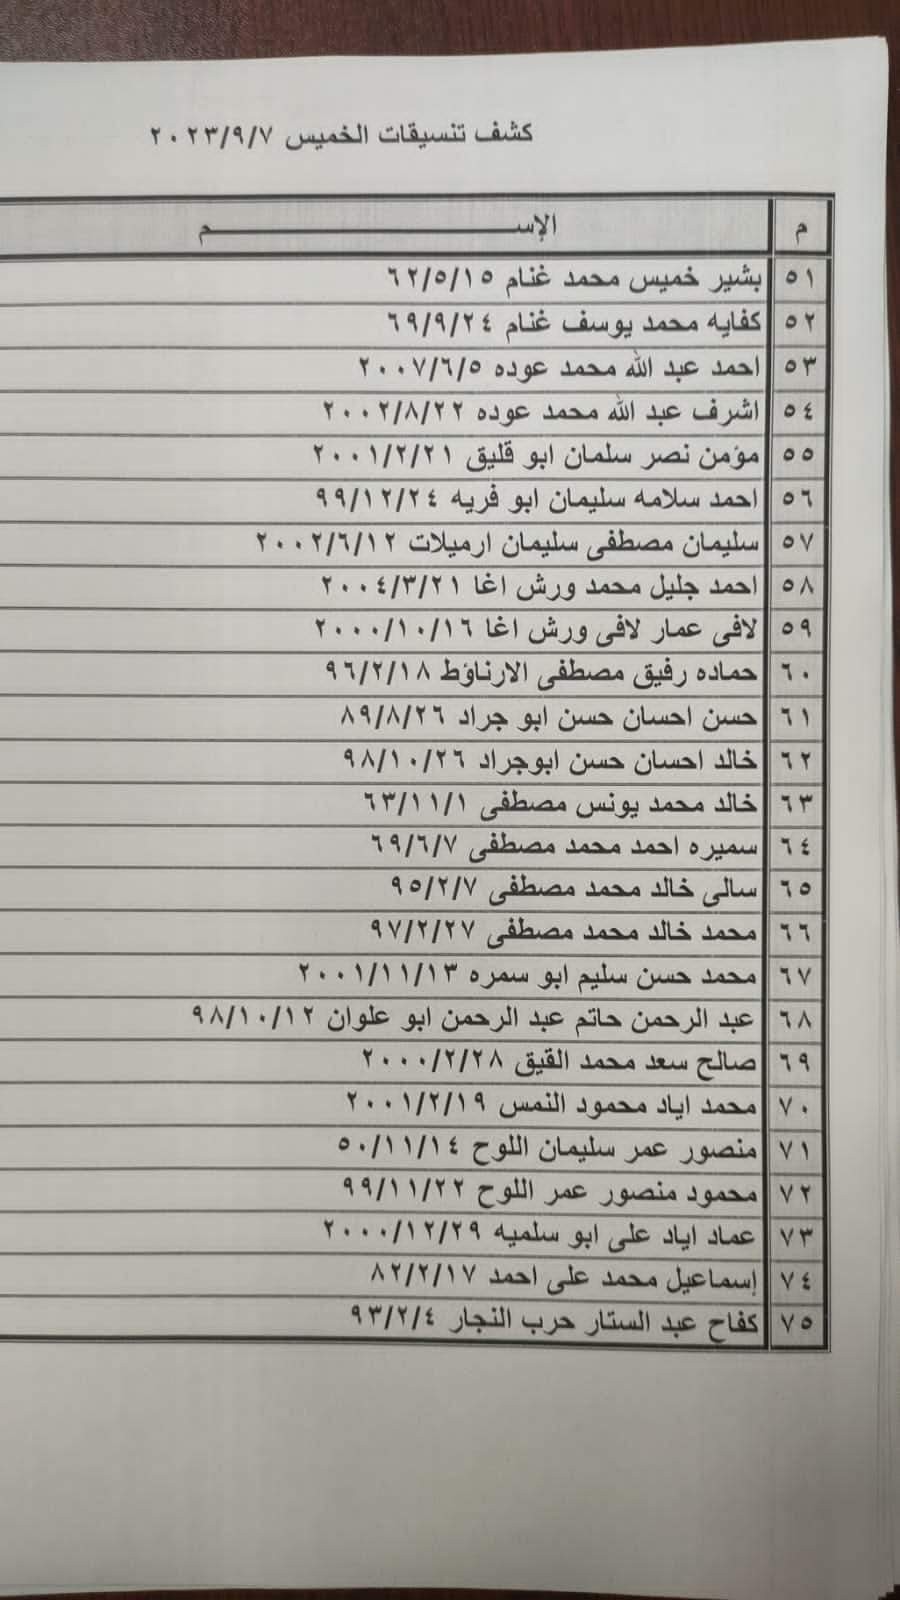 كشف تنسيقات الخميس ٢٠٢٣/٩/٧
م الإســـــــــــــم
٥١ بشير خميس محمد غنام ٦٢/٥/١٥
٥٢ كفايه محمد يوسف غنام ٦٩/٩/٢٤
٥٣ احمد عبد الله محمد عوده ٢٠٠٧/٦/٥
٥٤ اشرف عبد الله محمد عوده ٢٠٠٢/٨/٢٢
٥٥ مؤمن نصر سلمان ابو قليق ٢٠٠١/٢/٢١
٥٦ احمد سلامه سليمان ابو فريه ٩٩/١٢/٢٤
٥٧ سليمان مصطفى سليمان ارميلات ٢٠٠٢/٦/١٢
٥٨ احمد جليل محمد ورش اغا ٢٠٠٤/٣/٢١
٥٩ لافى عمار لافى ورش اغا ٢٠٠٠/١٠/١٦
٦٠ حماده رفيق مصطفى الارناؤط ٩٦/٢/١٨
٦١ حسن احسان حسن ابو جراد ٨٩/٨/٢٦
٦٢ خالد احسان حسن ابوجراد ٩٨/١٠/٢٦
٦٣ خالد محمد يونس مصطفى ٦٣/١١/١
٦٤ سميره احمد محمد مصطفى ٦٩/٦/٧
٦٥ سالى خالد محمد مصطفى ٩٥/٢/٧
٦٦ محمد خالد محمد مصطفى ٩٧/٢/٢٧
٦٧ محمد حسن سليم ابو سمره ٢٠٠١/١١/١٣
٦٨ عبد الرحمن حاتم عبد الرحمن ابو علوان ٩٨/١٠/١٢
٦٩ صالح سعد محمد القيق ٢٠٠٠/٢/٢٨
٧٠ محمد اياد محمود النمس ٢٠٠١/٢/١٩
٧١ منصور عمر سليمان اللوح ٥٠/١١/١٤
٧٢ محمود منصور عمر اللوح ٩٩/١١/٢٢
٧٣ عماد اياد على ابو سلميه ٢٠٠٠/١٢/٢٩
٧٤ إسماعيل محمد على احمد ٨٢/٢/١٧
٧٥ كفاح عبد الستار حرب النجار ٩٣/٢/٤